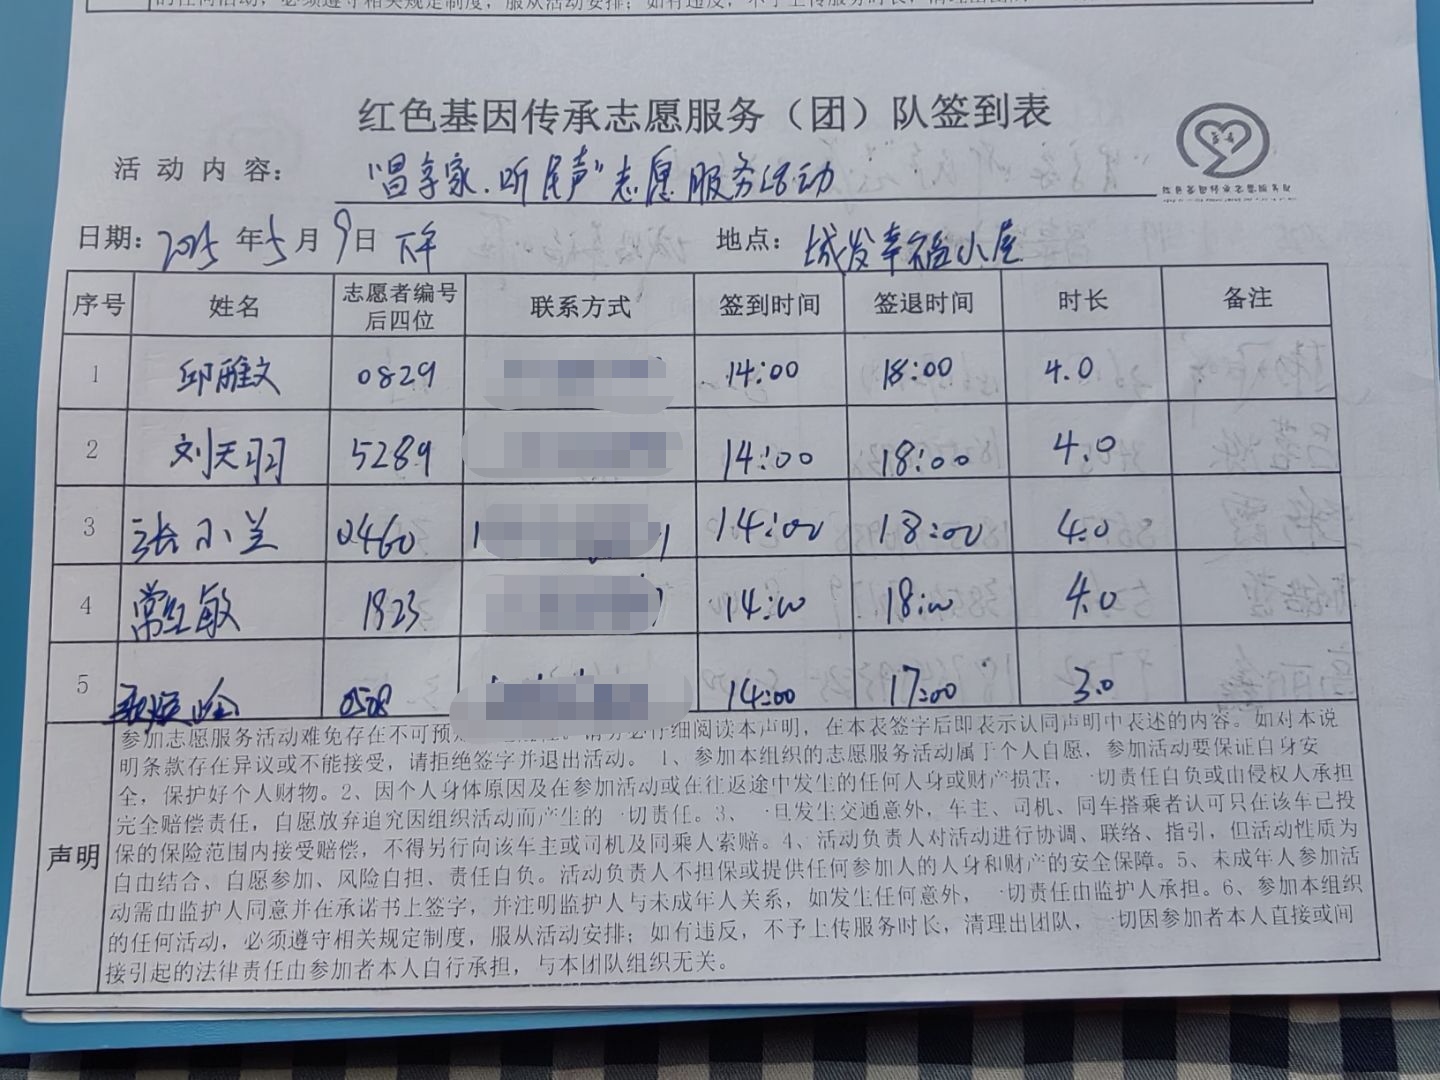 的任何活动，必须遵守相关规定制度，服从活动安排；如有违反，不予上传服务时长，清理出团队
红色基因传承志愿服务（团）队签到表
活动内容： “昌享家.听民声”志愿服务活动
日期：2025年5月9日 下午 地点：城发幸福小屋
序号 姓名 志愿者编号后四位 联系方式 签到时间 签退时间 时长 备注
1 邱雅文 0829 14:00 18:00 4.0
2 刘天羽 5289 14:00 18:00 4.0
3 张小兰 0460 14:00 18:00 4.0
4 常红敏 1823 14:00 18:00 4.0
5 0508 14:00 17:00 3.0
声明
参加志愿服务活动难免存在不可预 请务必仔细阅读本声明，在本表签字后即表示认同声明中表述的内容。如对本说
明条款存在异议或不能接受，请拒绝签字并退出活动。 1、参加本组织的志愿服务活动属于个人自愿，参加活动要保证自身安
全，保护好个人财物。2、因个人身体原因及在参加活动或在往返途中发生的任何人身或财产损害，一切责任自负或由侵权人承担
完全赔偿责任，自愿放弃追究因组织活动而产生的一切责任。3、一旦发生交通意外，车主、司机、同车搭乘者认可只在该车已投
保的保险范围内接受赔偿，不得另行向该车主或司机及同乘人索赔。4、活动负责人对活动进行协调、联络、指引，但活动性质为
自由结合、自愿参加、风险自担、责任自负。活动负责人不担保或提供任何参加人的人身和财产的安全保障。5、未成年人参加活
动需由监护人同意并在承诺书上签字，并注明监护人与未成年人关系，如发生任何意外，一切责任由监护人承担。6、参加本组织
的任何活动，必须遵守相关规定制度，服从活动安排；如有违反，不予上传服务时长，清理出团队，一切因参加者本人直接或间
接引起的法律责任由参加者本人自行承担，与本团队组织无关。